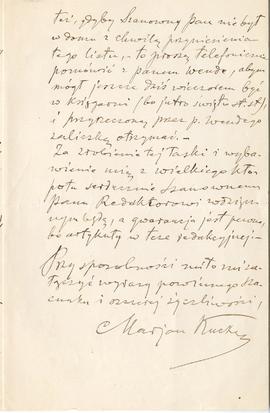 też, gdyby Szanowny Pan nie był
w domu z chwilą przyniesienia
tego listu, to proszę telefonicznie
pomówić z panem Wende, abym
mógł jeszcze dziś wieczorem być
w księgarni (bo jutro święto st. st.)
i przyrzeczoną przez p. Wendego
zaliczkę otrzymać. —
Za zrobienie tej łaski i wyba-
wienie mię z wielkiego kło-
potu serdecznie Szanownemu
Panu Redaktorowi wdzięcz-
nym będę, a gwarancja jest pewna,
bo artykuły w tece redakcyjnej. —
Przy sposobności miło mi za-
łączyć wyrazy powinnego sza-
cunku i szczerej życzliwości,
Marjan